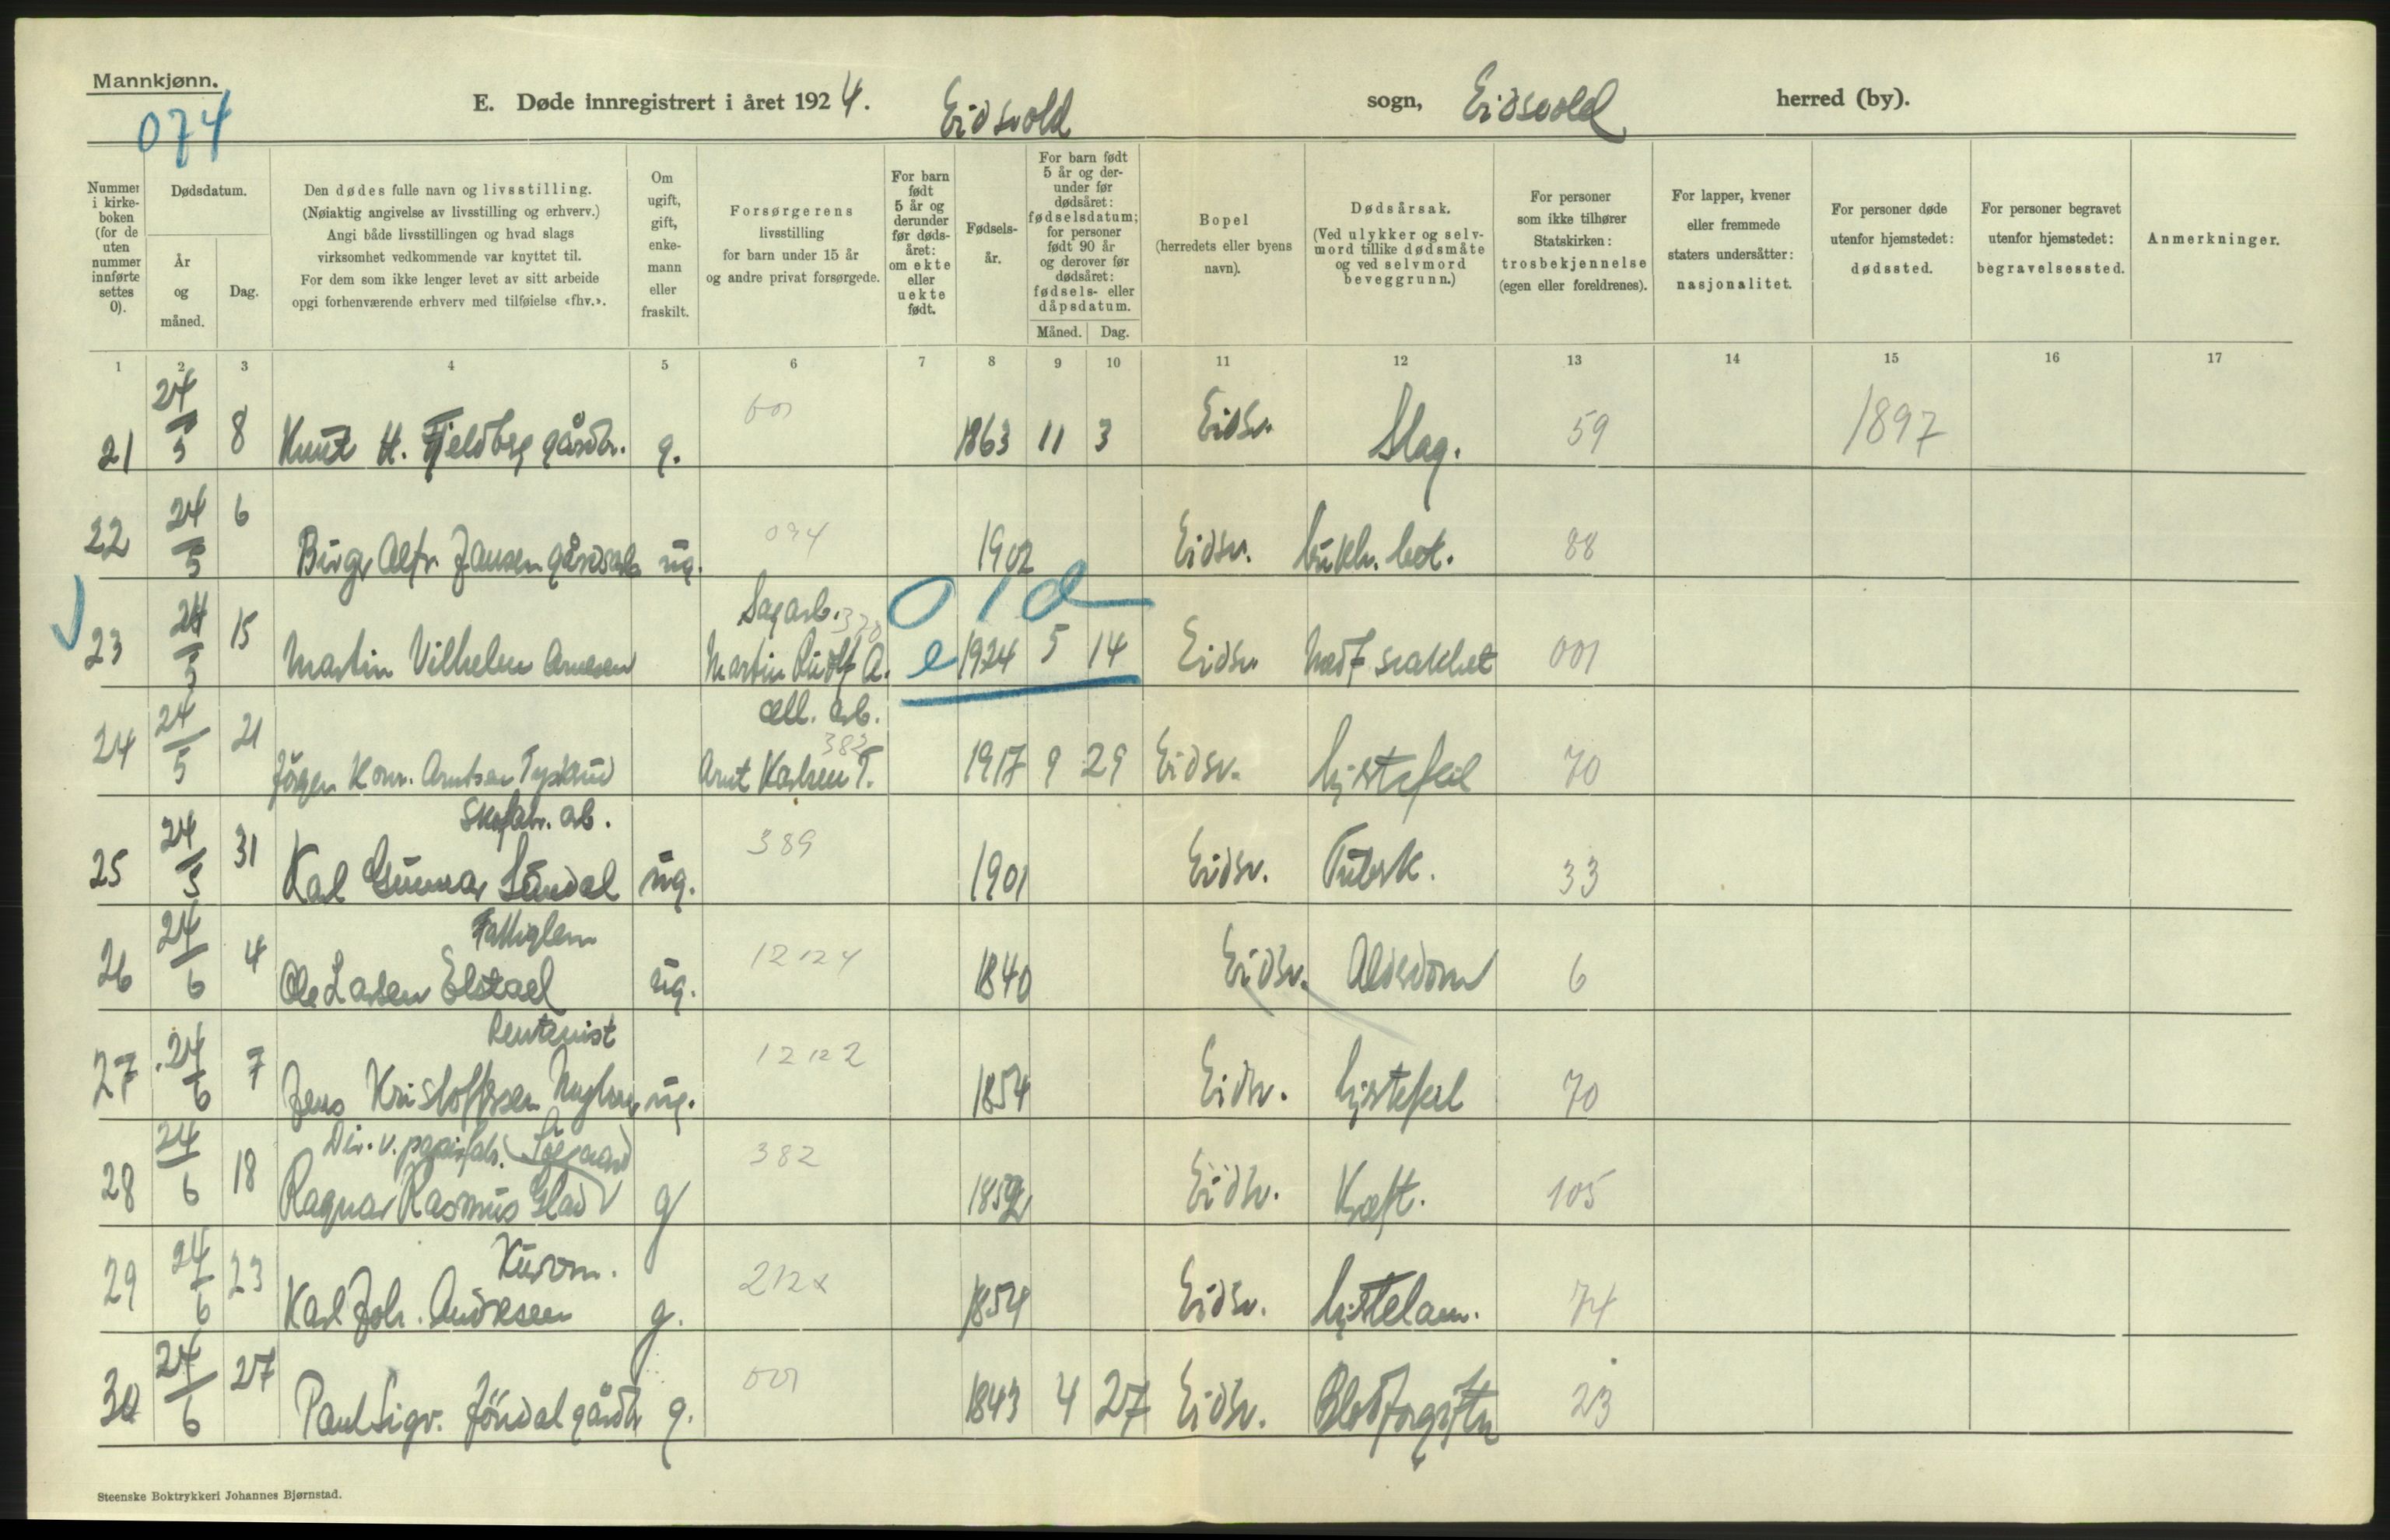 Mannkjønn.
074
E. Døde innregistrert i året 1924. Eidsvold sogn, Eidsvold herred (by).
Nummer i kirkeboken (for de uten nummer innførte settes 0).
Dødsdatum.
År og måned.
Dag.
Den dødes fulle navn og livsstilling.
(Nøiaktig angivelse av livsstilling og erhverv.)
Angi både livsstillingen og hvad slags
virksomhet vedkommende var knyttet til.
For dem som ikke lenger levet av sitt arbeide
opgi forhenværende erhverv med tilføielse «fhv.».
Om ugift, gift, enkemann eller fraskilt.
Forsørgerens
livsstilling
for barn under 15 år
og andre privat forsørgede.
For barn født 5 år og derunder før dødsåret: om ekte eller uekte født.
Fødselsår.
For barn født 5 år og derunder før dødsåret: fødselsdatum; for personer født 90 år og derover før dødsåret: fødsels- eller dåpsdatum.
Måned. Dag.
Bopel
(herredets eller byens
navn).
Dødsårsak.
(Ved ulykker og selvmord tillike dødsmåte og ved selvmord beveggrunn.)
For personer
som ikke tilhører
Statskirken:
trosbekjennelse
(egen eller foreldrenes).
For lapper, kvener
eller fremmede
staters undersåtter:
nasjonalitet.
For personer døde
utenfor hjemstedet:
dødssted.
For personer begravet
utenfor hjemstedet:
begravelsessted.
Anmerkninger.
1 2 3 4 5 6 7 8 9 10 11 12 13 14 15 16 17
21 24/5 8 Knut H. Fjeldberg gårdbr. g. 1863 11 3 Eidsv. Slag. 59 1897
22 24/5 6 Birger Alfr. Jansen gårdsarb ug. 034 1902 Eidsv. 88
Sagarb.
23 24/5 15 Martin Vilhelm Arnesen Martin Rudolf A. e 1924 5 14 Eidsv. Medf svakhet 001
cell. arb.
382
24 24/5 21 Jörgen Konr. Arntsen Arnt Karlsen T. 1917 9 29 Eidsv. hjertefeil 70
Skofabr. arb.
25 24/5 31 Karl Gunnar Sundal ug. 389 1901 Eidsv. Tuberk. 33
Fattiglem
26 24/6 4 Ole Larsen Elstael ug. 12124 1840 Eidsv. Alderdom 6
Rentenist
27 24/6 7 Jens Kristoffersen ug. 12122 1854 Eidsv. hjertefeil 70
Dir. v. papirfabr.
28 24/6 18 Ragnar Rasmus Glad g 382 Eidsv. Kræft. 105
29 24/6 23 Karl Joh. Andresen g. 212x 1854 Eidsv. hjertelam. 74
30 24/6 27 Paul Sigv. Jöndal gårdbr g. 1843 4 27 Eidsv. Blodforgiftn 23
Steenske Boktrykkeri Johannes Bjørnstad.